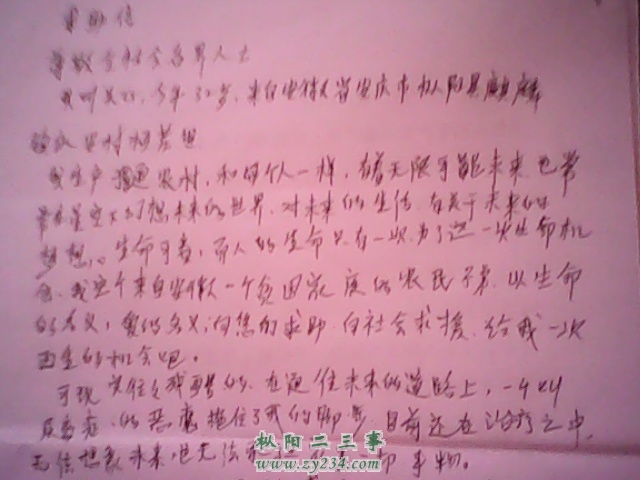 求助信
尊敬的社会各界人士
我叫 今年32岁,来自安徽省安庆市枞阳县麒麟
镇 村
我生户普通农村,和每个人一样,有着无限可能未来也常
常在星空下幻想未来的世界,对未来的生活,有关于未来的
梦想。生命可贵,而人的生命只有一次,为了这一次生命机
会,我这个来自安徽一个贫困家庭的农民子弟,以生命
的名义,爱的名义;向您们求助,向社会求援,给我一次
重生的机会吧。
可现实往往是残酷的,在通往未来的道路上,一个叫
的恶魔拖住了我的脚步,目前还在治疗之中,
无法想象未来,也无法 一切事物。
枞阳二三事
www.zy234.com